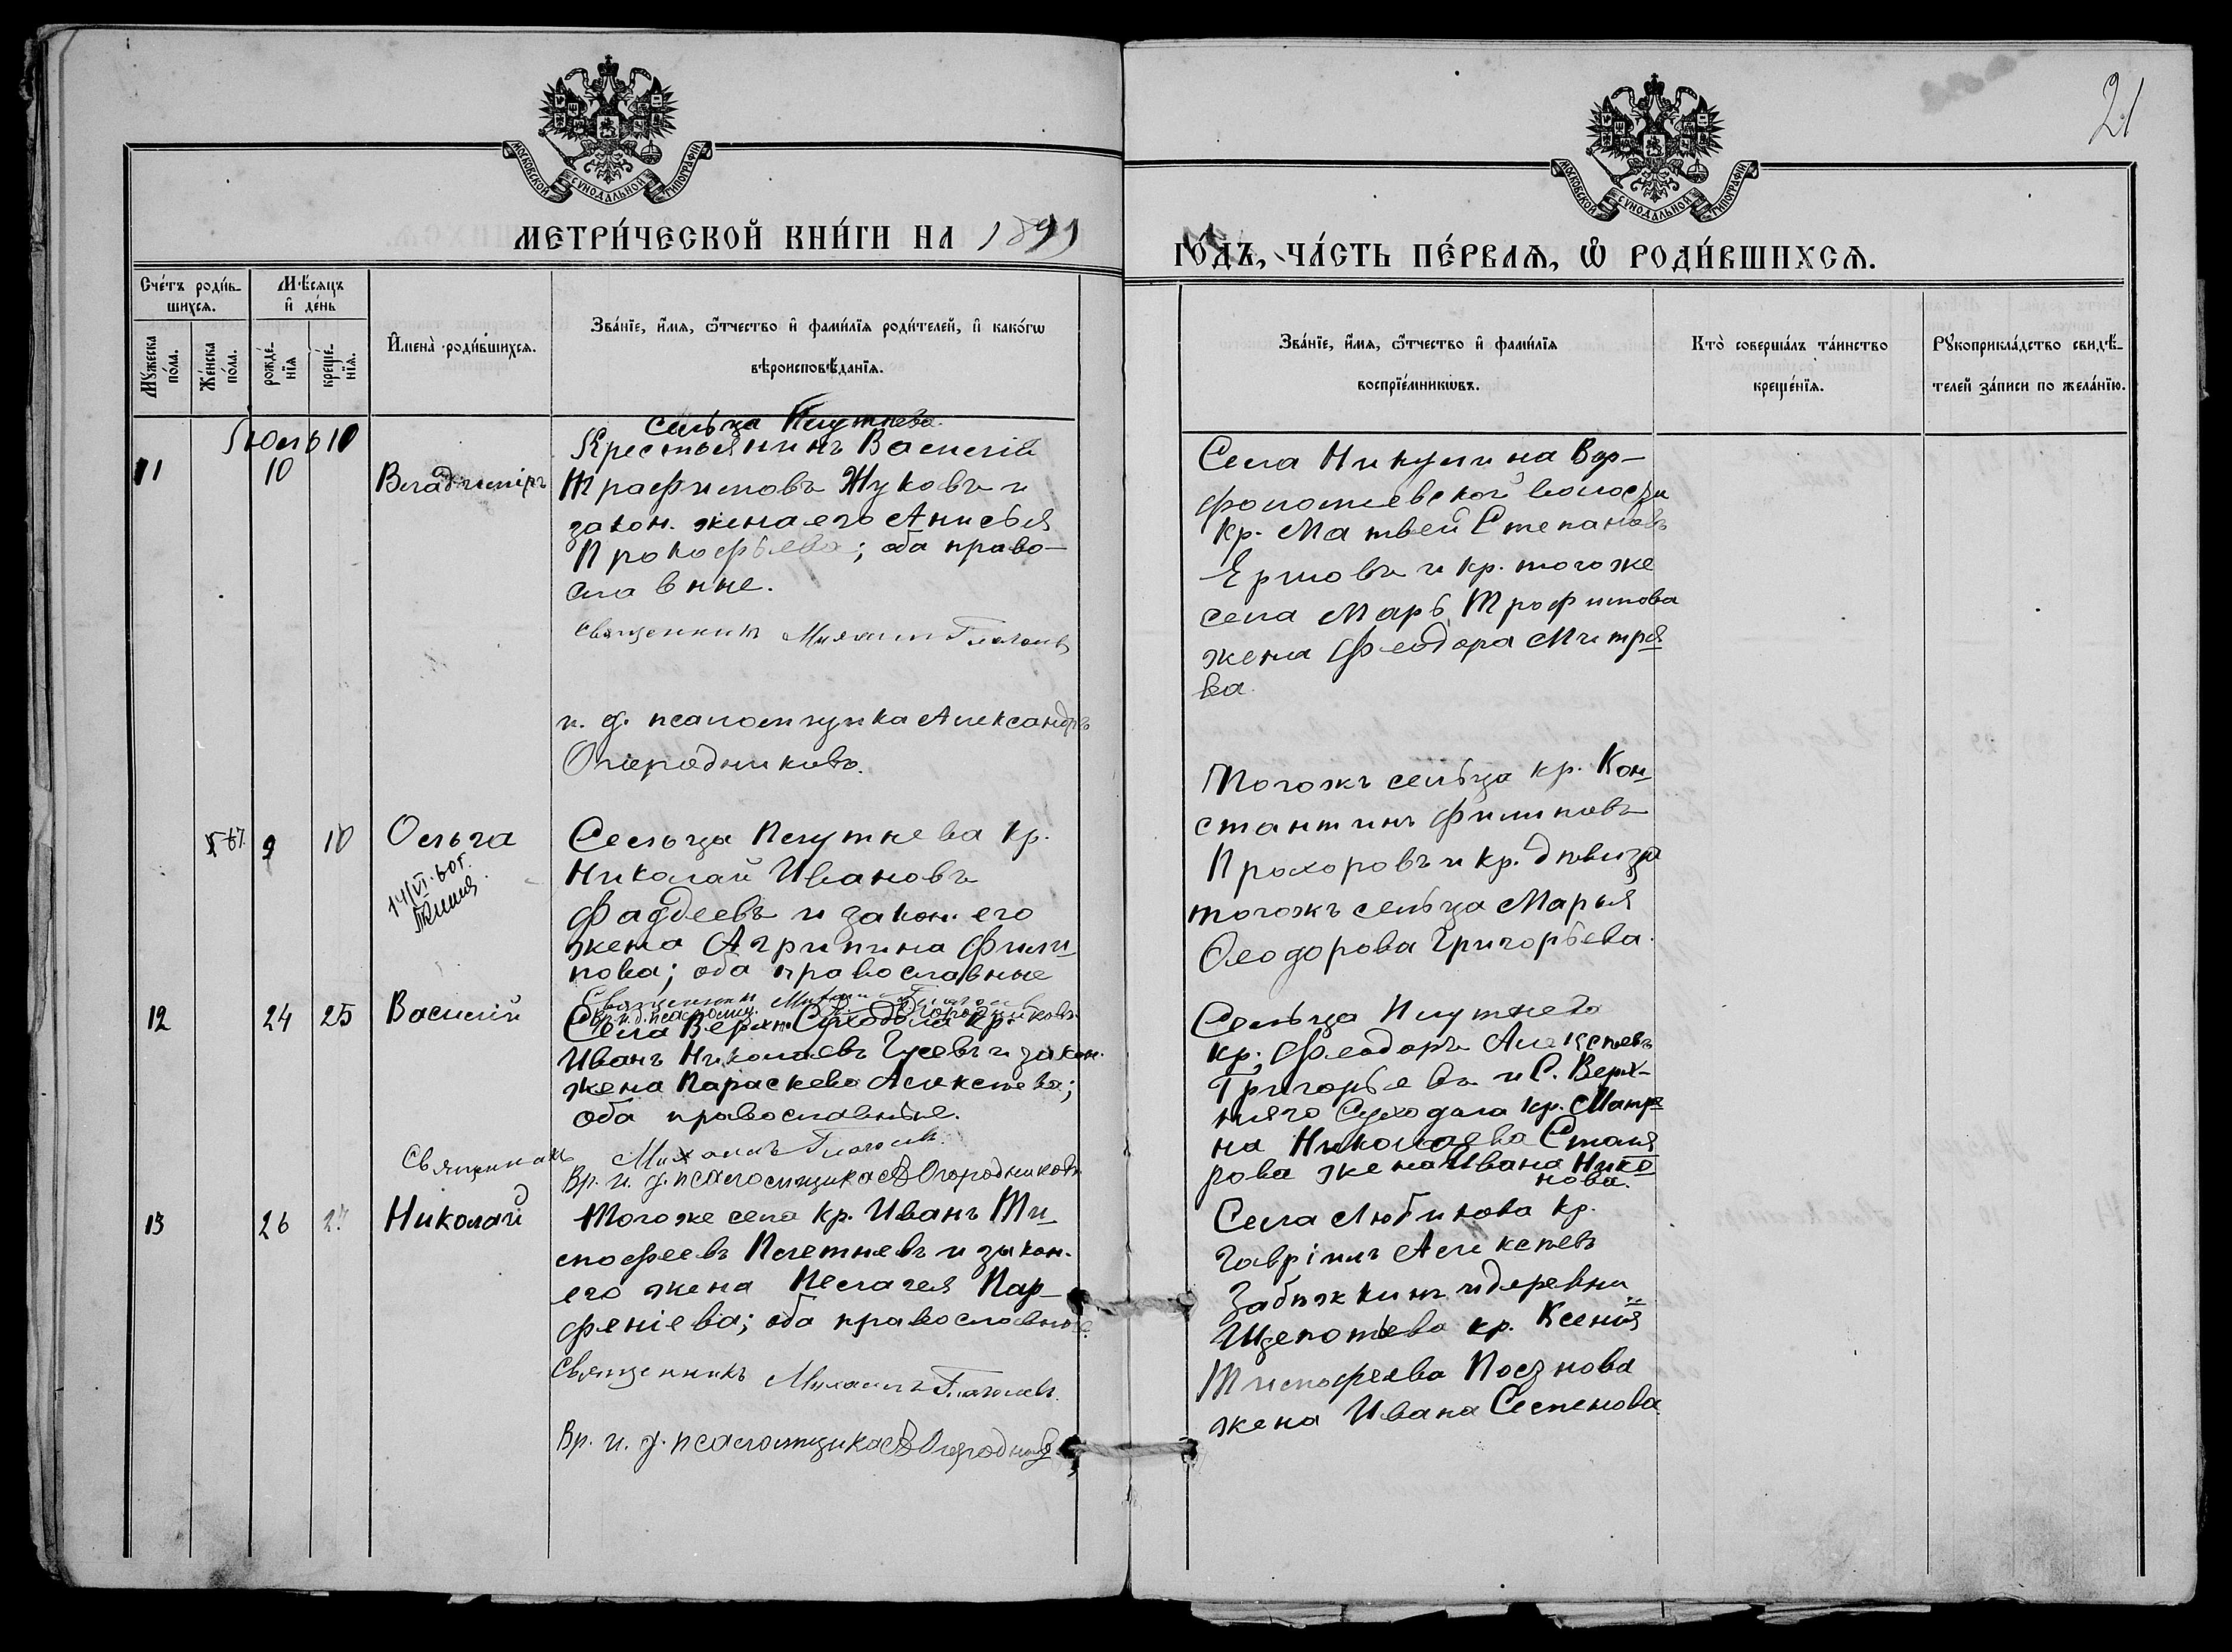 21
МОСКОВСКОЙ СѴНОДАЛЬНОЙ ТИПОГРАФІИ
МОСКОВСКОЙ СѴНОДАЛЬНОЙ ТИПОГРАФІИ
МЕТРИ́ЧЕСКОЙ КНИ́ГИ НА 1899
ГО́ДЪ, ЧА́СТЬ ПЕ́РВАѦ, Ѽ РОДИ́ВШИХСѦ.
Сче́тъ роди́в-
шихсѧ.
Мѣ́сѧцъ
и҆ де́нь
Мꙋ́жеска
по́ла.
Же́нска
по́ла.
рожде́-
нїѧ
креще́-
нїѧ.
И҆мена̀ роди́вшихсѧ.
Зва́нїе, и҆́мѧ, ѻ҆́тчество и҆ фами́лїѧ роди́телей, и҆ како́гѡ
вѣроисповѣ́данїѧ.
Зва́нїе, и҆́мѧ, ѻ҆́тчество и҆ фами́лїѧ
воспрїе́мникѡвъ.
Кто̀ соверша́лъ та́инство
креще́нїѧ.
Рꙋкоприкла́дство свидѣ́-
телей за́писи по жела́нїю.
Іюль 10
11 10 Владиміръ
сельца Плутнева
Крестьянинъ Василій
Трафимовъ Жуковъ и
закон. жена его Анисья
Прокофьева; оба право-
славные.
Священникъ Михаилъ Глаголевъ
и. д. псаломщика Александръ
Огородниковъ.
Села Никулина Вар-
фоломеевской волости
кр. Матвей Степановъ
Ершовъ и кр. тогоже
села Марь Трофимова
жена Феодора Митря
ва.
9 10 Ольга
14/VI·60г.
Сельца Плутнева кр.
Николай Ивановъ
Фаддеевъ и закон. его
жена Агрипина Фили
пова; оба православные
Священникъ Михаилъ Глаголевъ
Вр. и. д. псаломщ. А Огородниковъ.
Тогожъ сельца кр. Кон
стантинъ Филиповъ
Прохоровъ и кр. дѣвица
тогожъ сельца Марья
Ѳеодорова Григорьева.
12 24 25 Василій
Села Верхн. Суходола кр.
Иванъ Николаевъ Гусевъ и закон.
жена Параскева Алексѣева;
оба православные.
Священникъ Михаилъ Глаголевъ.
Вр. и. д. псаломщика А Огородниковъ
Сельца Плутнева
кр. Феодоръ Алексѣевъ
Григорьевъ и С. Верх-
няго Суходола кр. Матре
на Николаева Столя
рова жена Ивана Нико
нова.
13 26 27 Николай
Тогоже села кр. Иванъ Ти
мофеевъ Плетневъ и закон.
его жена Пелагея Пар-
феніева; оба православные.
Священникъ Михаилъ Глаголевъ.
Вр. и. д. псаломщика А Огородников
Села Любикова кр.
Гавріилъ Алексѣевъ
Забѣжкинъ и деревни
Щепотьева кр. Ксенія
Тимофеева Позднова
жена Ивана Семенова.